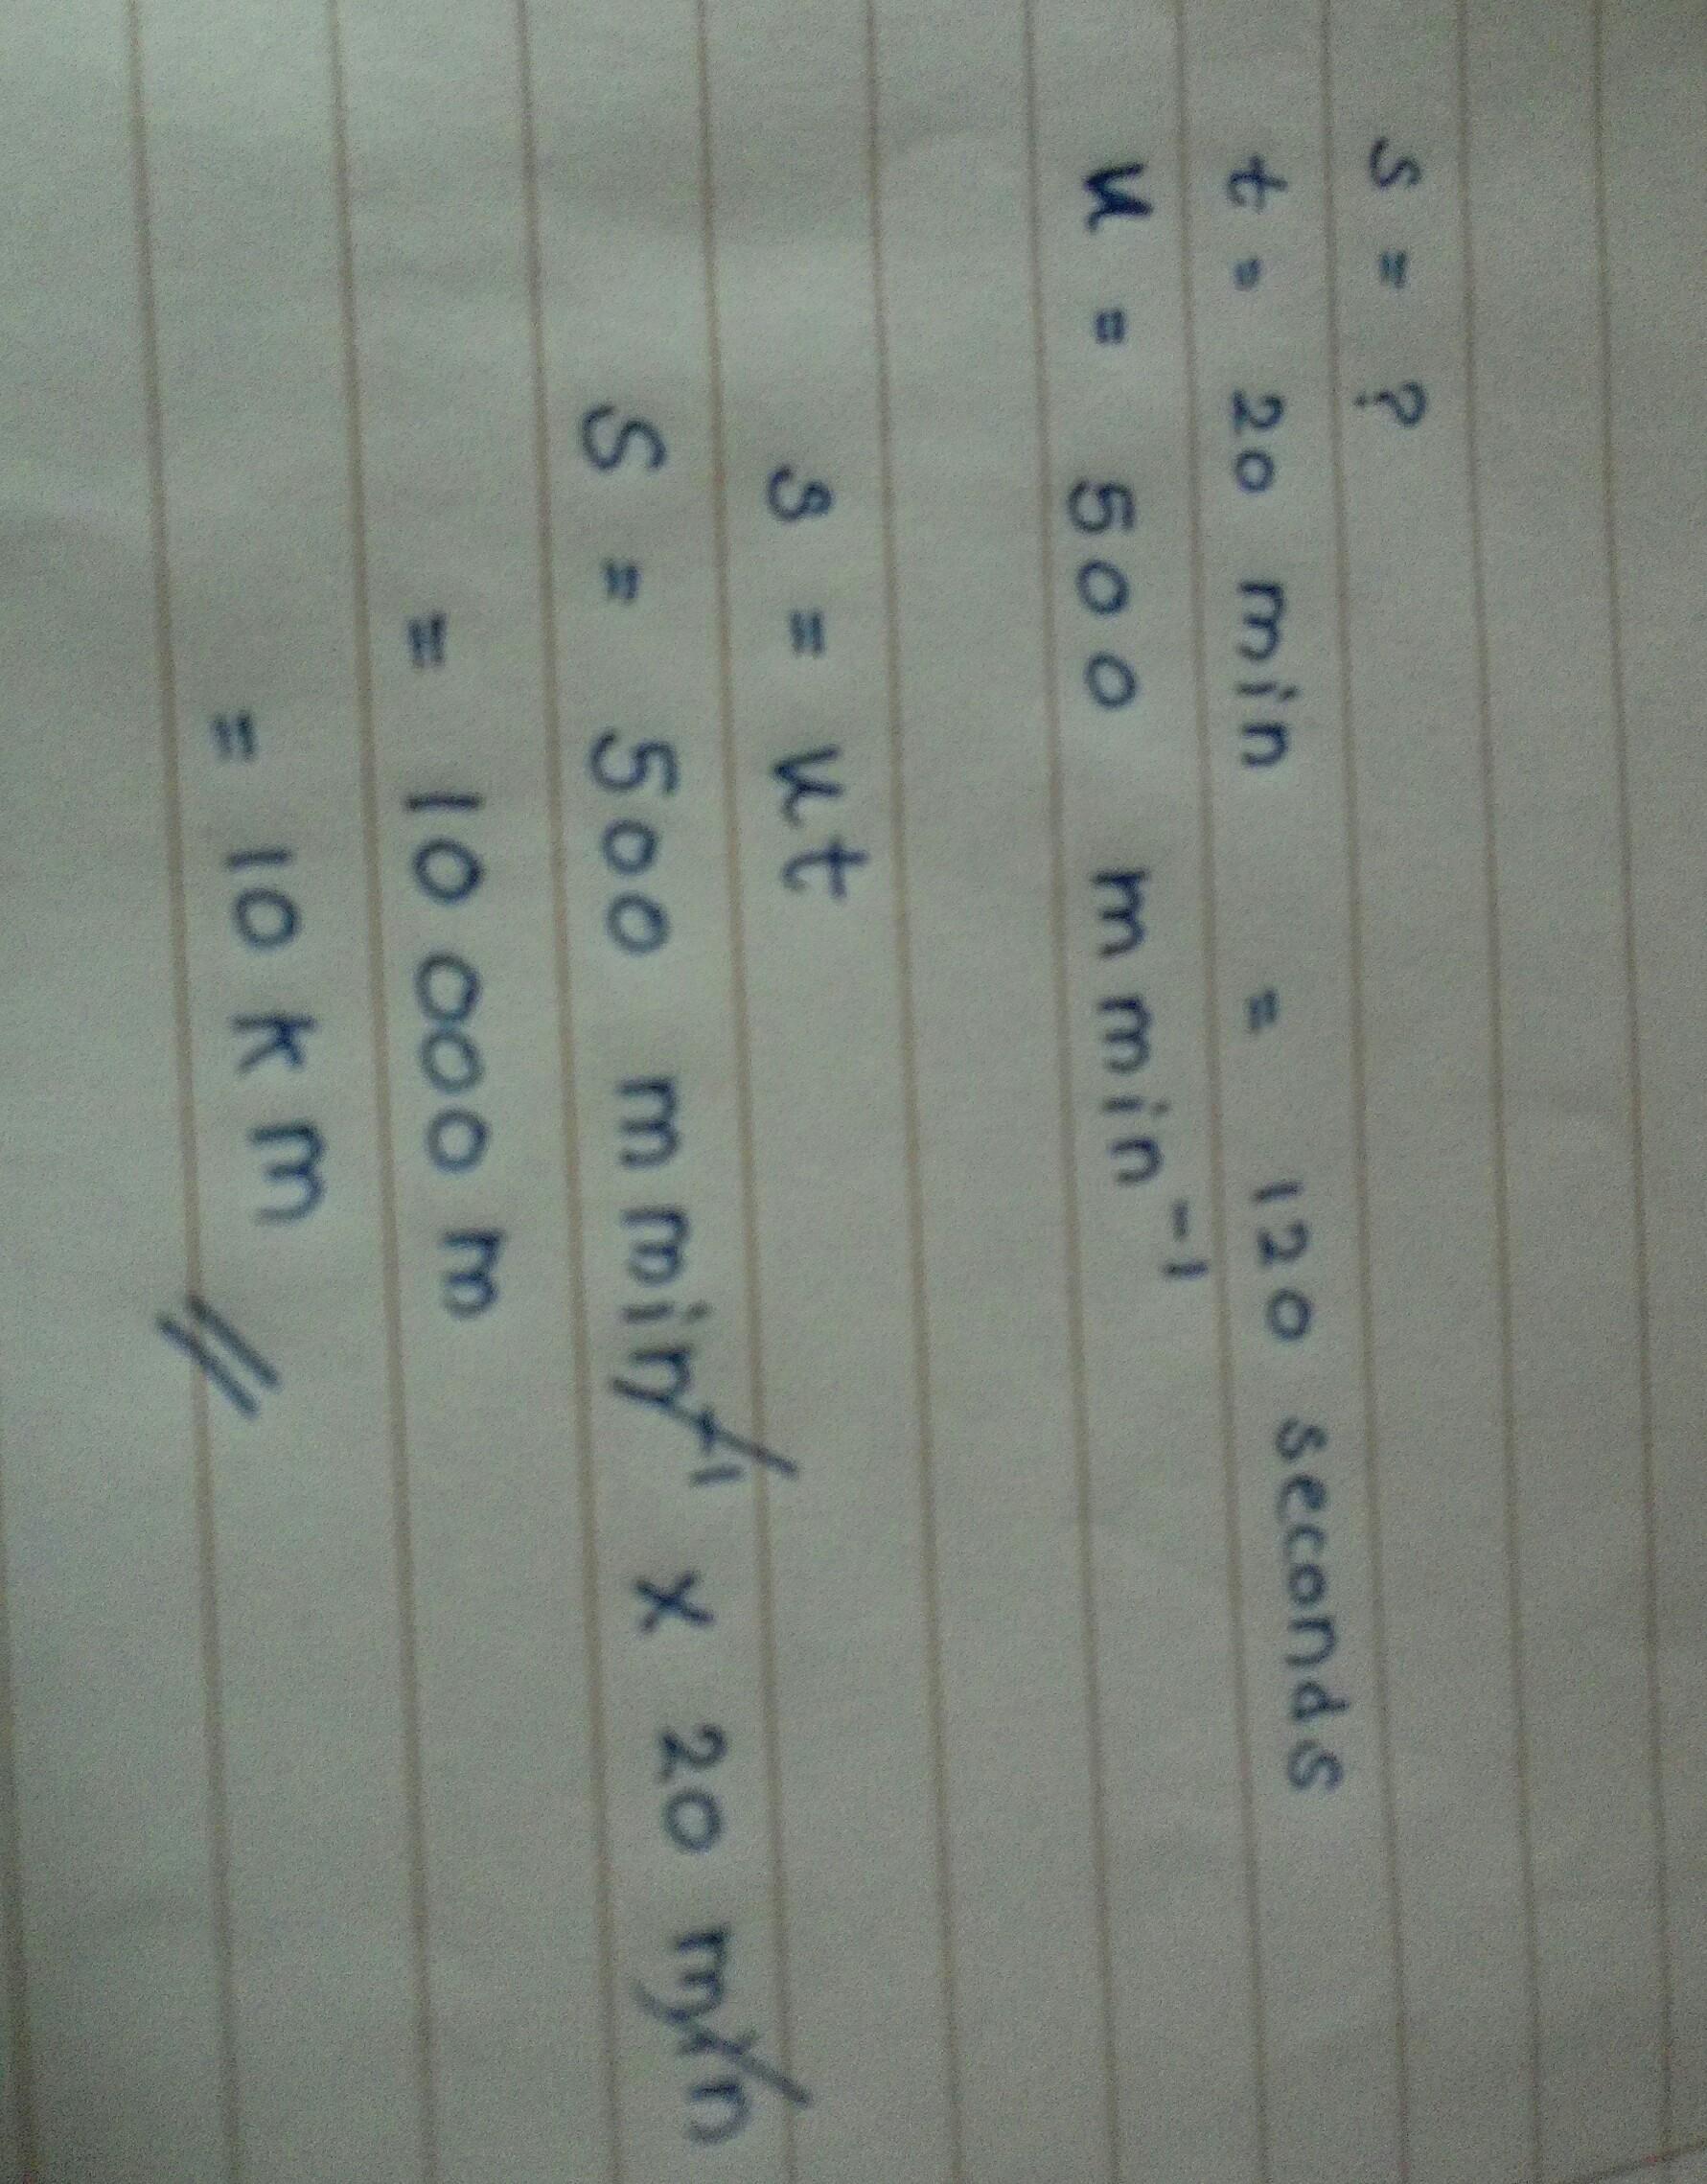 s = ?
t = 20 min = 120 seconds
u = 500 m min⁻¹
s = ut
S = 500 m min⁻¹ x 20 min
= 10 000 m
= 10 km //